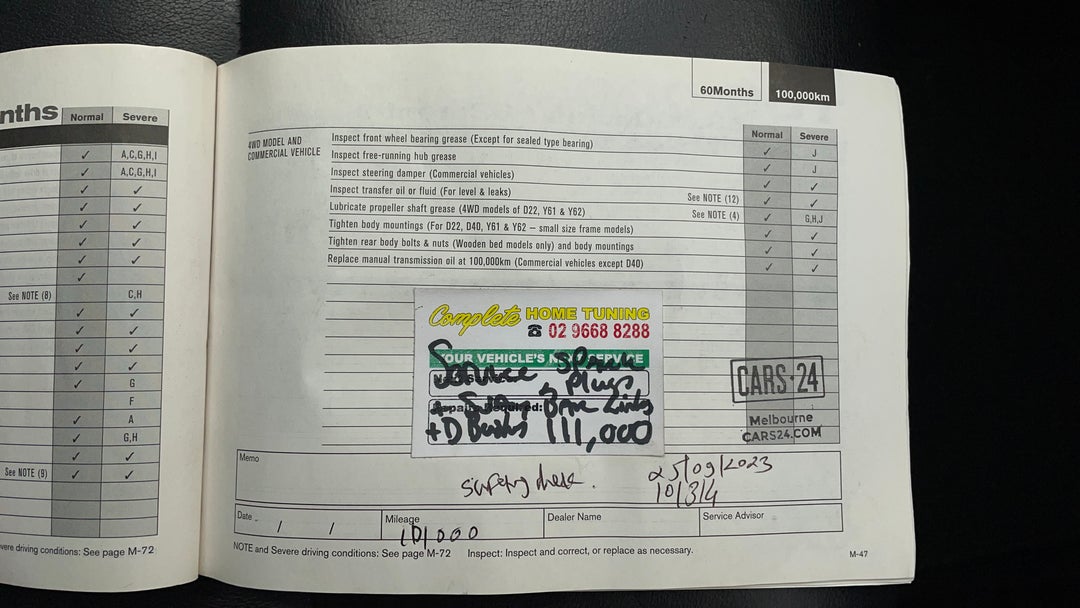 nths
Normal Severe
✓ A,C,G,H,I
✓ A,C,G,H,I
✓ ✓
✓ ✓
✓ ✓
✓ ✓
✓ ✓
✓
See NOTE (8) C,H
✓ ✓
✓ ✓
✓ ✓
✓ ✓
✓ G
F
✓ A
✓ G,H
✓ ✓
See NOTE (9) ✓ ✓
vere driving conditions: See page M-72
60Months 100,000km
Normal Severe
4WD MODEL AND
COMMERCIAL VEHICLE
Inspect front wheel bearing grease (Except for sealed type bearing) ✓ J
Inspect free-running hub grease ✓ J
Inspect steering damper (Commercial vehicles) ✓ ✓
Inspect transfer oil or fluid (For level & leaks) See NOTE (12) ✓ ✓
Lubricate propeller shaft grease (4WD models of D22, Y61 & Y62) See NOTE (4) ✓ G,H,J
Tighten body mountings (For D22, D40, Y61 & Y62 – small size frame models) ✓ ✓
Tighten rear body bolts & nuts (Wooden bed models only) and body mountings ✓ ✓
Replace manual transmission oil at 100,000km (Commercial vehicles except D40) ✓ ✓
Complete HOME TUNING
☎ 02 9668 8288
YOUR VEHICLE'S SERVICE
Service Spark
Plugs
Links
+D 111,000
CARS·24
Melbourne
CARS24.COM
Memo
25/09/2023
10/3/4
Date / /
Mileage
101000
Dealer Name
Service Advisor
NOTE and Severe driving conditions: See page M-72 Inspect: Inspect and correct, or replace as necessary.
M-47